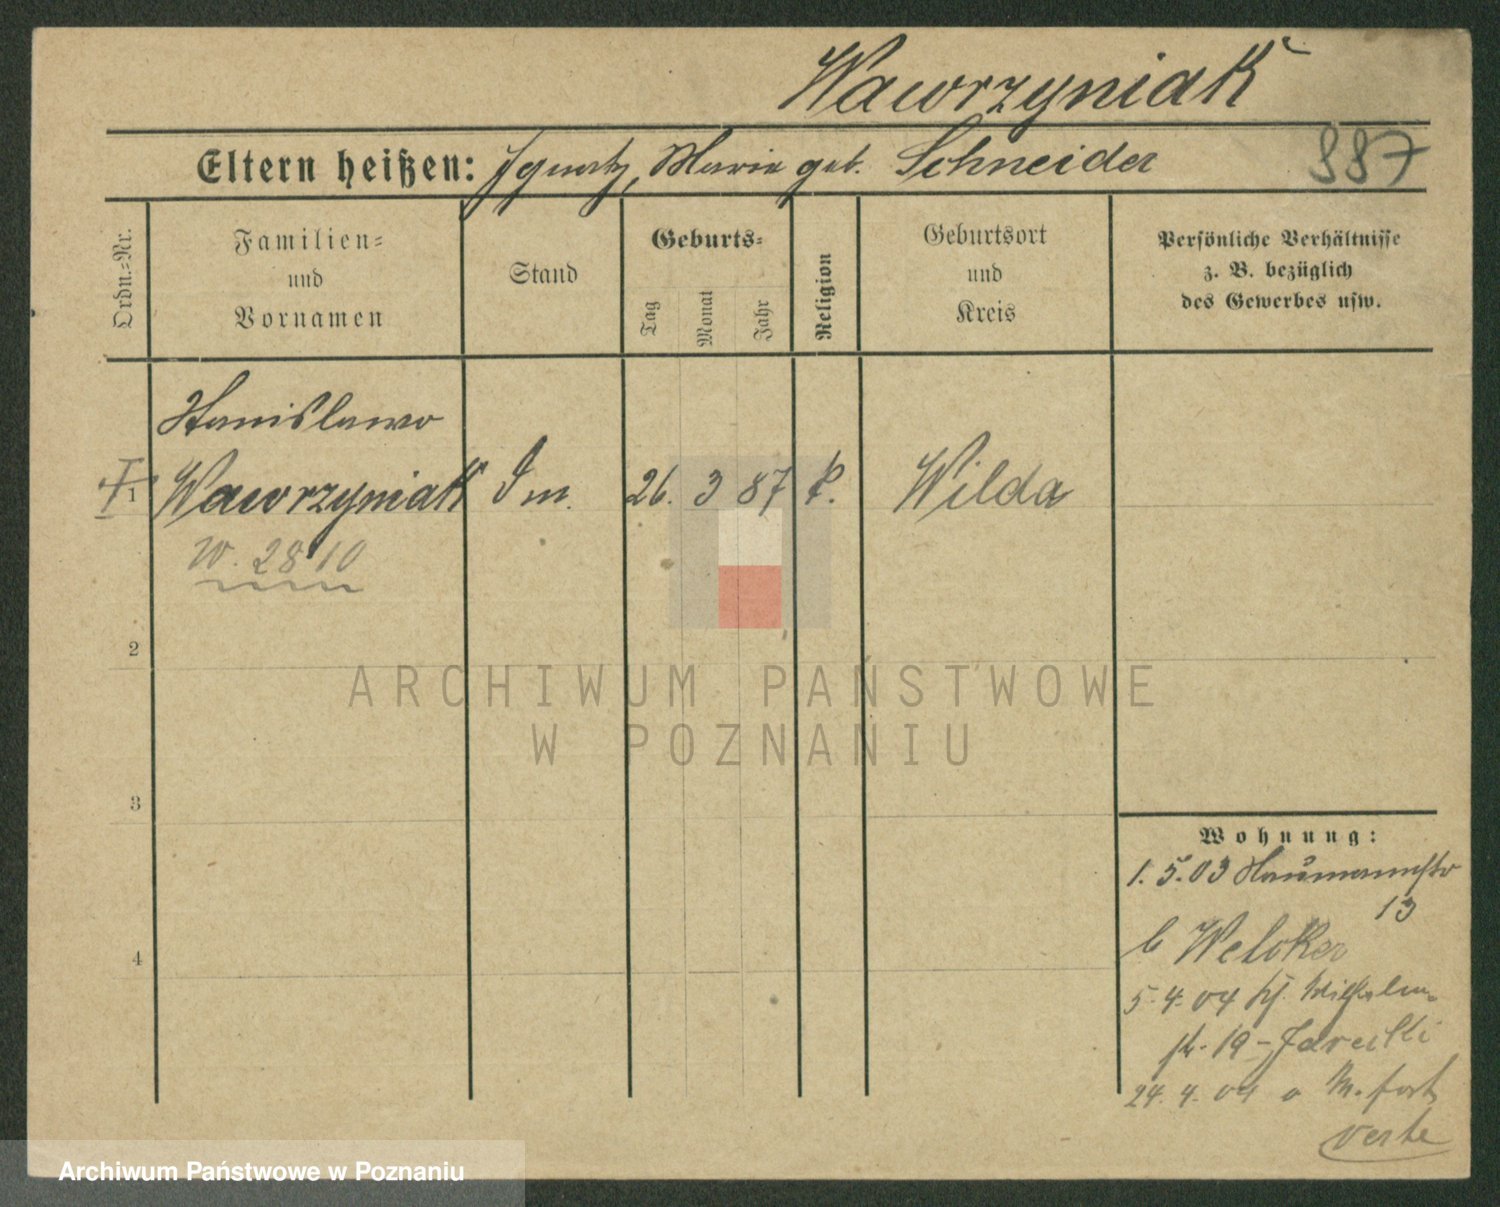 Wawrzyniak
Eltern heißen: Ignatz, Marie geb. Schneider 887
Ordn.-Nr.
Familien- und Vornamen
Stand
Geburts-
Tag
Monat
Jahr
Religion
Geburtsort und Kreis
Persönliche Verhältnisse
z. B. bezüglich
des Gewerbes usw.
Stanislawa
1 Wawrzyniak Dm. 26. 3 87 k. Wilda
W. 2810
2
ARCHIWUM PAŃSTWOWE
W POZNANIU
3
Wohnung:
1. 5. 03 Naumannstr
13
b Welcker
4
5. 4. 04 Wilhelm-
str. 19 - Jarecki
24. 4. 04 fort
verte
Archiwum Państwowe w Poznaniu